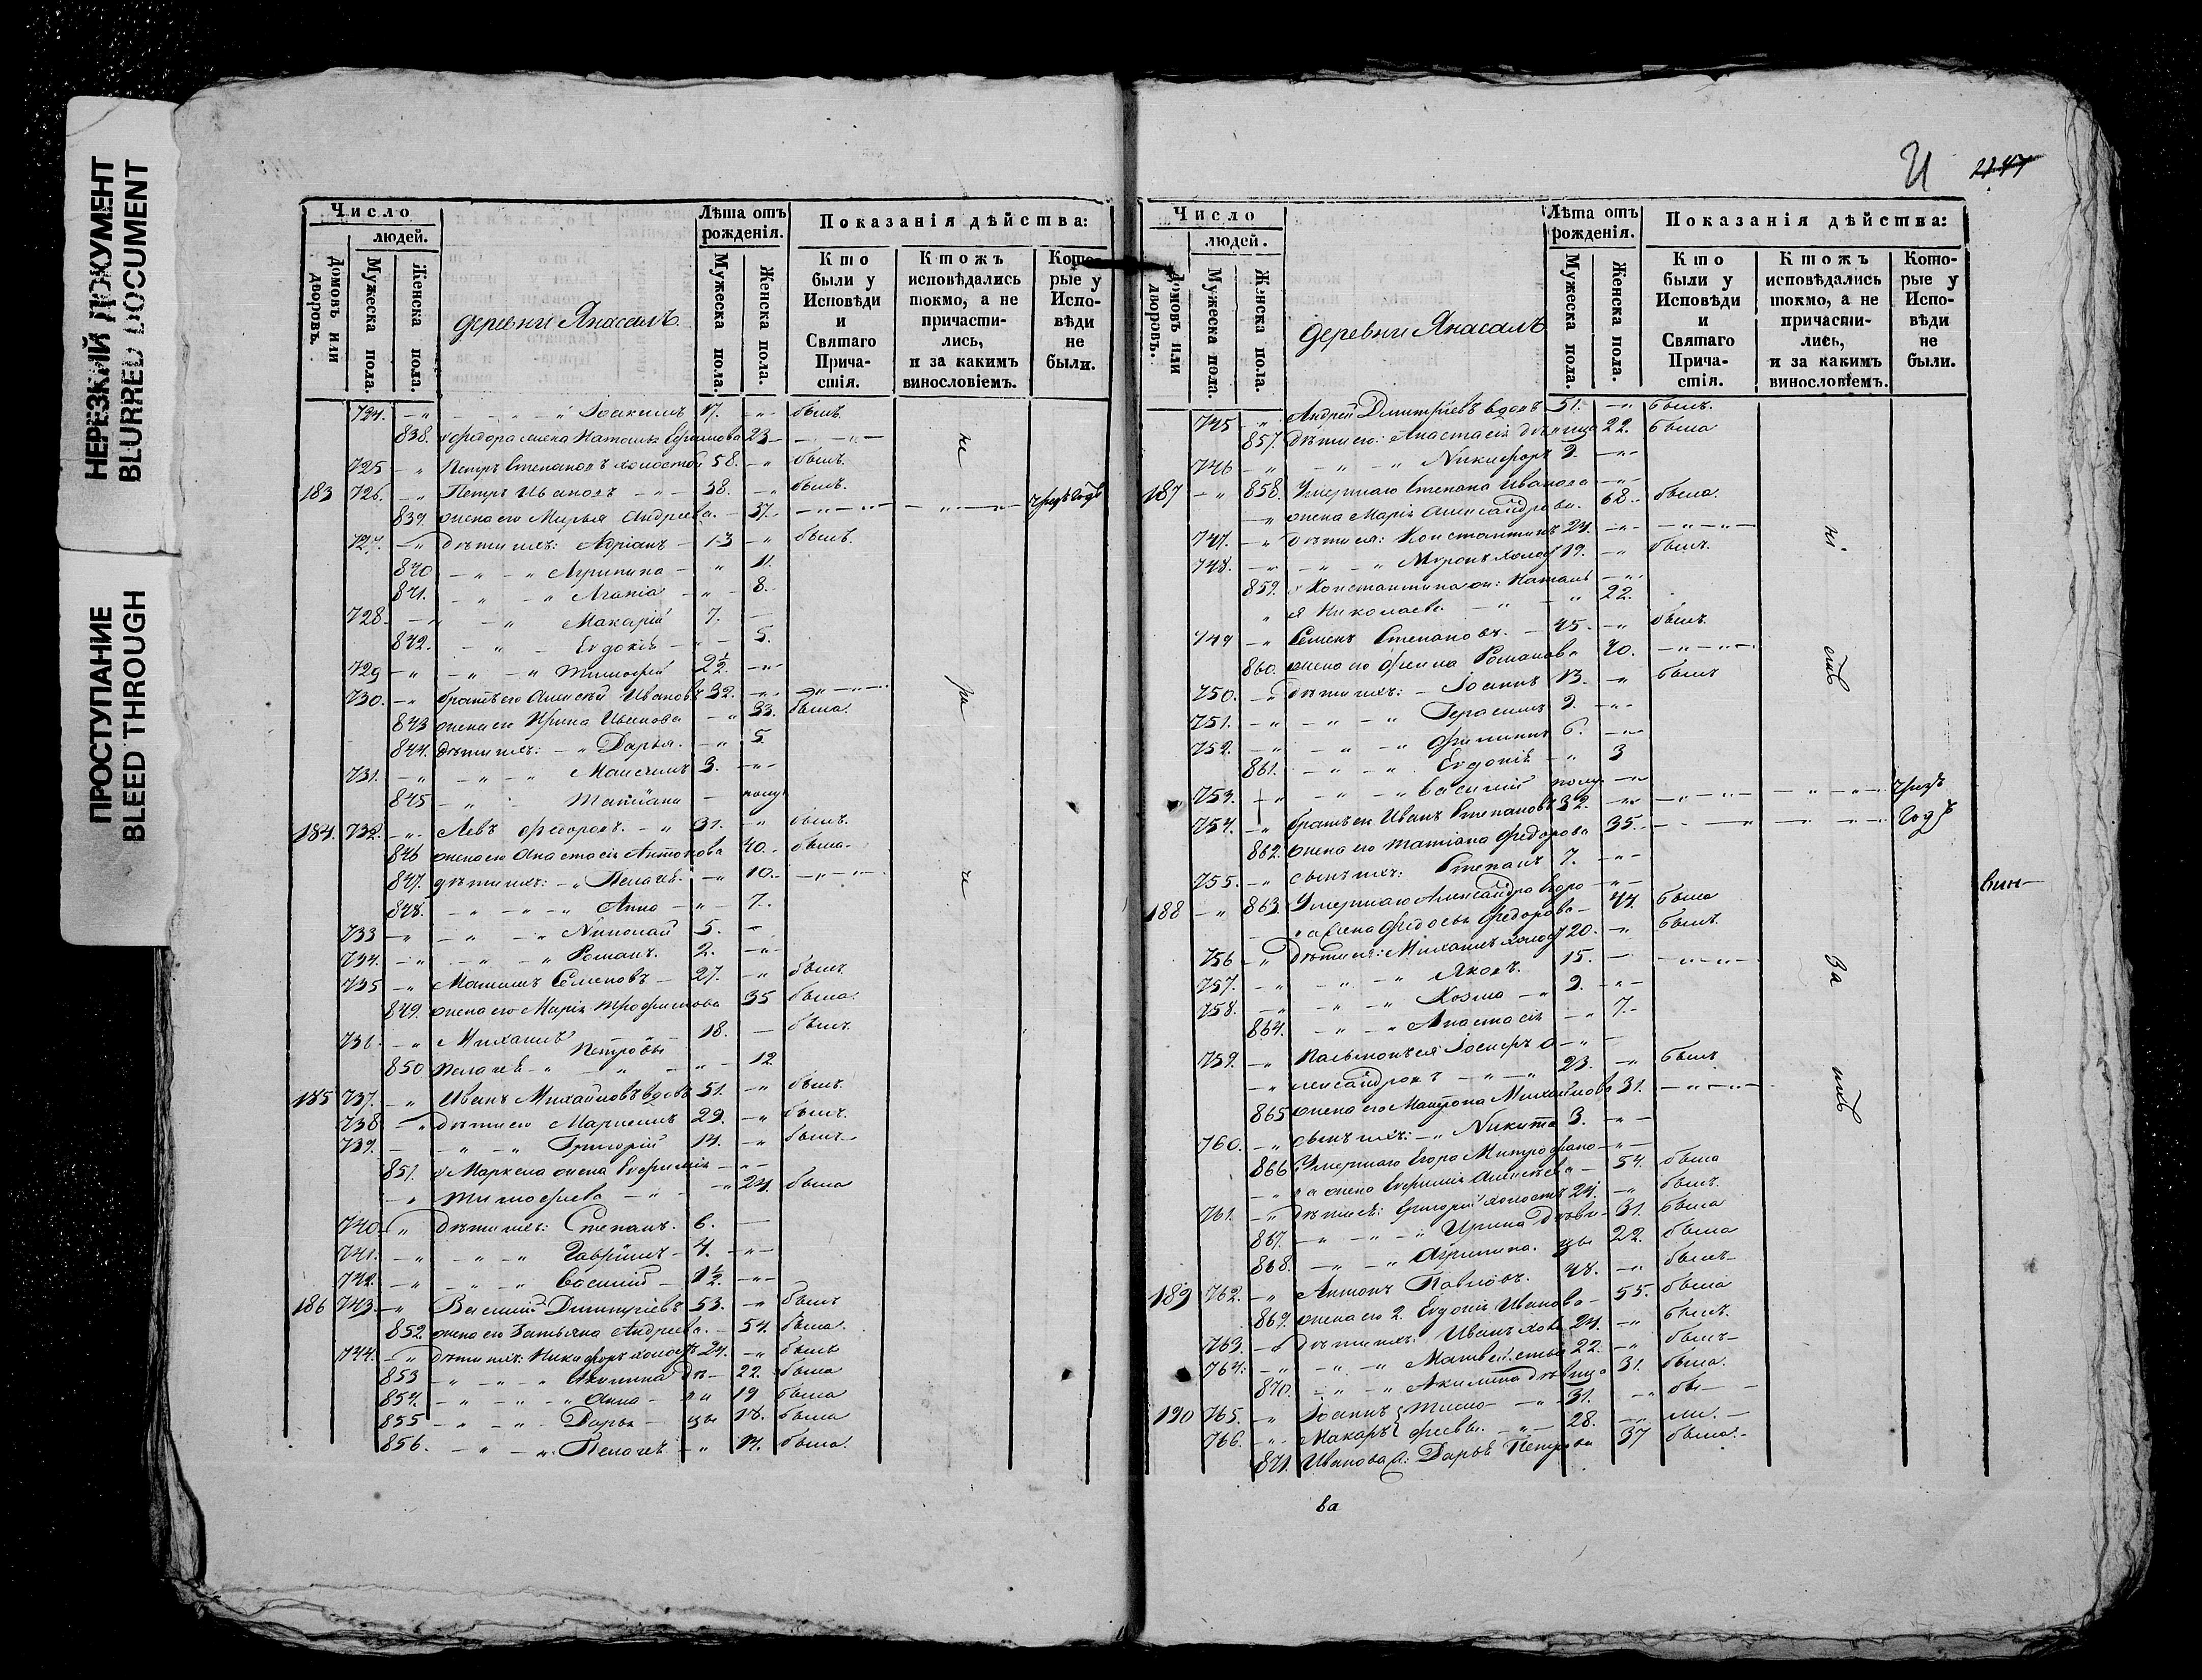 НЕРЕЗКИЙ ДОКУМЕНТ
BLURRED DOCUMENT
ПРОСТУПАНИЕ
BLEED THROUGH
Число
людей.
Домовъ или дворовъ.
Мужеска пола.
Женска пола.
деревни Янасалъ
Лѣта отъ рожденія.
Мужеска пола.
Женска пола.
Показанія дѣйства:
Кто были у Исповѣди и Святаго Причастія.
Ктожъ исповѣдались токмо, а не причастились, и за какимъ винословіемъ.
Которые у Исповѣди не были.
724. Іоакимъ 17. былъ.
838. Ѳедора жена Наталья 23
725 Петръ Степановъ холостой 58. былъ.
183 726. Петръ Ивановъ 38. былъ.
839. жена его Марья Андреева. 37. чрезъ годъ
727. дѣти ихъ: Адріанъ 13 былъ.
840 Агрипина 11.
841. Агапія 8.
728. Макарій 7.
842. Евдокія 5.
729 Тимофей 2½
730. братъ его Алексѣй Ивановъ 32.
843 жена его Ирина Иванова 33. была.
844. дѣти ихъ: Дарья. 5.
731. Максимъ 3.
845 Татіана полуг
184. 732. Левъ Ѳедоровъ. 31. былъ.
846 жена его Анастасія Антонова 40. была.
847. дѣти ихъ: Пелагея 10.
848. Анна 7.
733 Николай 5.
734. Романъ. 2.
735 Семеновъ 27. былъ
849. жена его Марія Трофимова 35 была.
736. Михаилъ Петровы 18. былъ.
850 Пелагея 12
185 737. Иванъ Михайловъ вдовъ 51. былъ.
738 дѣти его Маркелъ 29. былъ.
739. Григорій 14. былъ
851. Маркела жена Евфимія
Тимофеева 24. была
740 дѣти ихъ: Степанъ. 6.
741. Гавріилъ 4.
742. Василій 1½
186 743. Василій Дмитріевъ 53. былъ
852. жена его Татьяна Андреева. 54. была.
744. дѣти ихъ: Никифоръ холостъ 24. былъ
853 Акилина дѣ 22. была
854. Анна 19 была
855 Дарья цы 18. была
856. Пелагея 17. была.
не
ра
че
2247
Число
людей.
Домовъ или дворовъ.
Мужеска пола
Женска пола.
деревни Янасалъ
Лѣта отъ рожденія.
Мужеска пола.
Женска пола.
Показанія дѣйства:
Кто были у Исповѣди и Святаго Причастія.
Ктожъ исповѣдались токмо, а не причастились, и за какимъ винословіемъ.
Которые у Исповѣди не были.
745 Андрей Дмитріевъ вдовъ 51. былъ.
857. дѣти его: Анастасія дѣвица 22. была
746 Никифоръ 9.
187 858. Умершаго Степана Иванова
жена Марія Александрова. 68. была.
747. дѣти ея: Константинъ 24.
748. Миронъ холост 19. былъ.
859. Константина ж: Натал
я Николаева 22.
749 Семенъ Степановъ. 45. былъ.
860. жена его Романова 40.
750. дѣти ихъ: Іоаннъ 13. былъ
751. Герасимъ 9.
752. Филиппъ 6.
861. Евдокія 3
753. Василій полуг
754. братъ ея Иванъ Степановъ 32. чрезъ
862. жена его Татіана Ѳедорова 35. годъ
755. сынъ ихъ: Степанъ 7.
188 863. Умершаго Александра Егоро
ва жена Ѳедосья Ѳедорова 44. была
756 дѣти ея: Михаилъ холост 20. былъ.
757. Яковъ. 15.
758. Козма 9.
864. Анастасія 7.
759. Пасынокъ ея Іосифъ А
лександровъ 23. былъ
865 жена его Матрона Михайлова 31.
760. сынъ ихъ: Никита 3.
866 Умершаго Егора Митрофано
ва жена Евфимія Алексѣева 54. была
761. дѣти ея: Григорій холостъ 24. былъ.
867. Ирина дѣви 31. была
868. Агрипина. цы 22. была
189 762. Антонъ Павловъ. 48. былъ
869. жена его 2. Евдокія Иванова 55. была
763. дѣти ихъ: Иванъ 24. былъ.
764. Матвей 22. былъ
870. Акилина дѣвица 31. была.
190 765. Іоаннъ Тимо 31. бы
766. Макаръ феевы. 28. ли.
871. Иванова ж: Дарья Петрова 37 была.
ва
за
вин